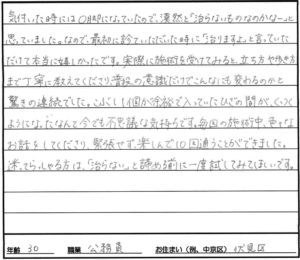 気付いた時にはO脚になっていたので、漠然と「治らないものなのかな〜」と
思っていました。なので、最初に診ていただいた時に「治りますよ」と言っていた
だけて本当に嬉しかったです。実際に施術を受けてみると、立ち方や歩き方
まで丁寧に教えてくださり、普段の意識だけでこんなにも変わるのかと
驚きの連続でした。こぶし1個が余裕で入っていたひざの間が、くっつく
ようになったなんて今でも不思議な気持ちです。毎回の施術中、色々な
お話をしてくださり、緊張せず、楽しんで10回通うことができました。
迷ってらっしゃる方は、「治らない」と諦める前に一度試してみてほしいです。
年齢 30 職業 公務員 お住まい(例、中京区) 伏見区